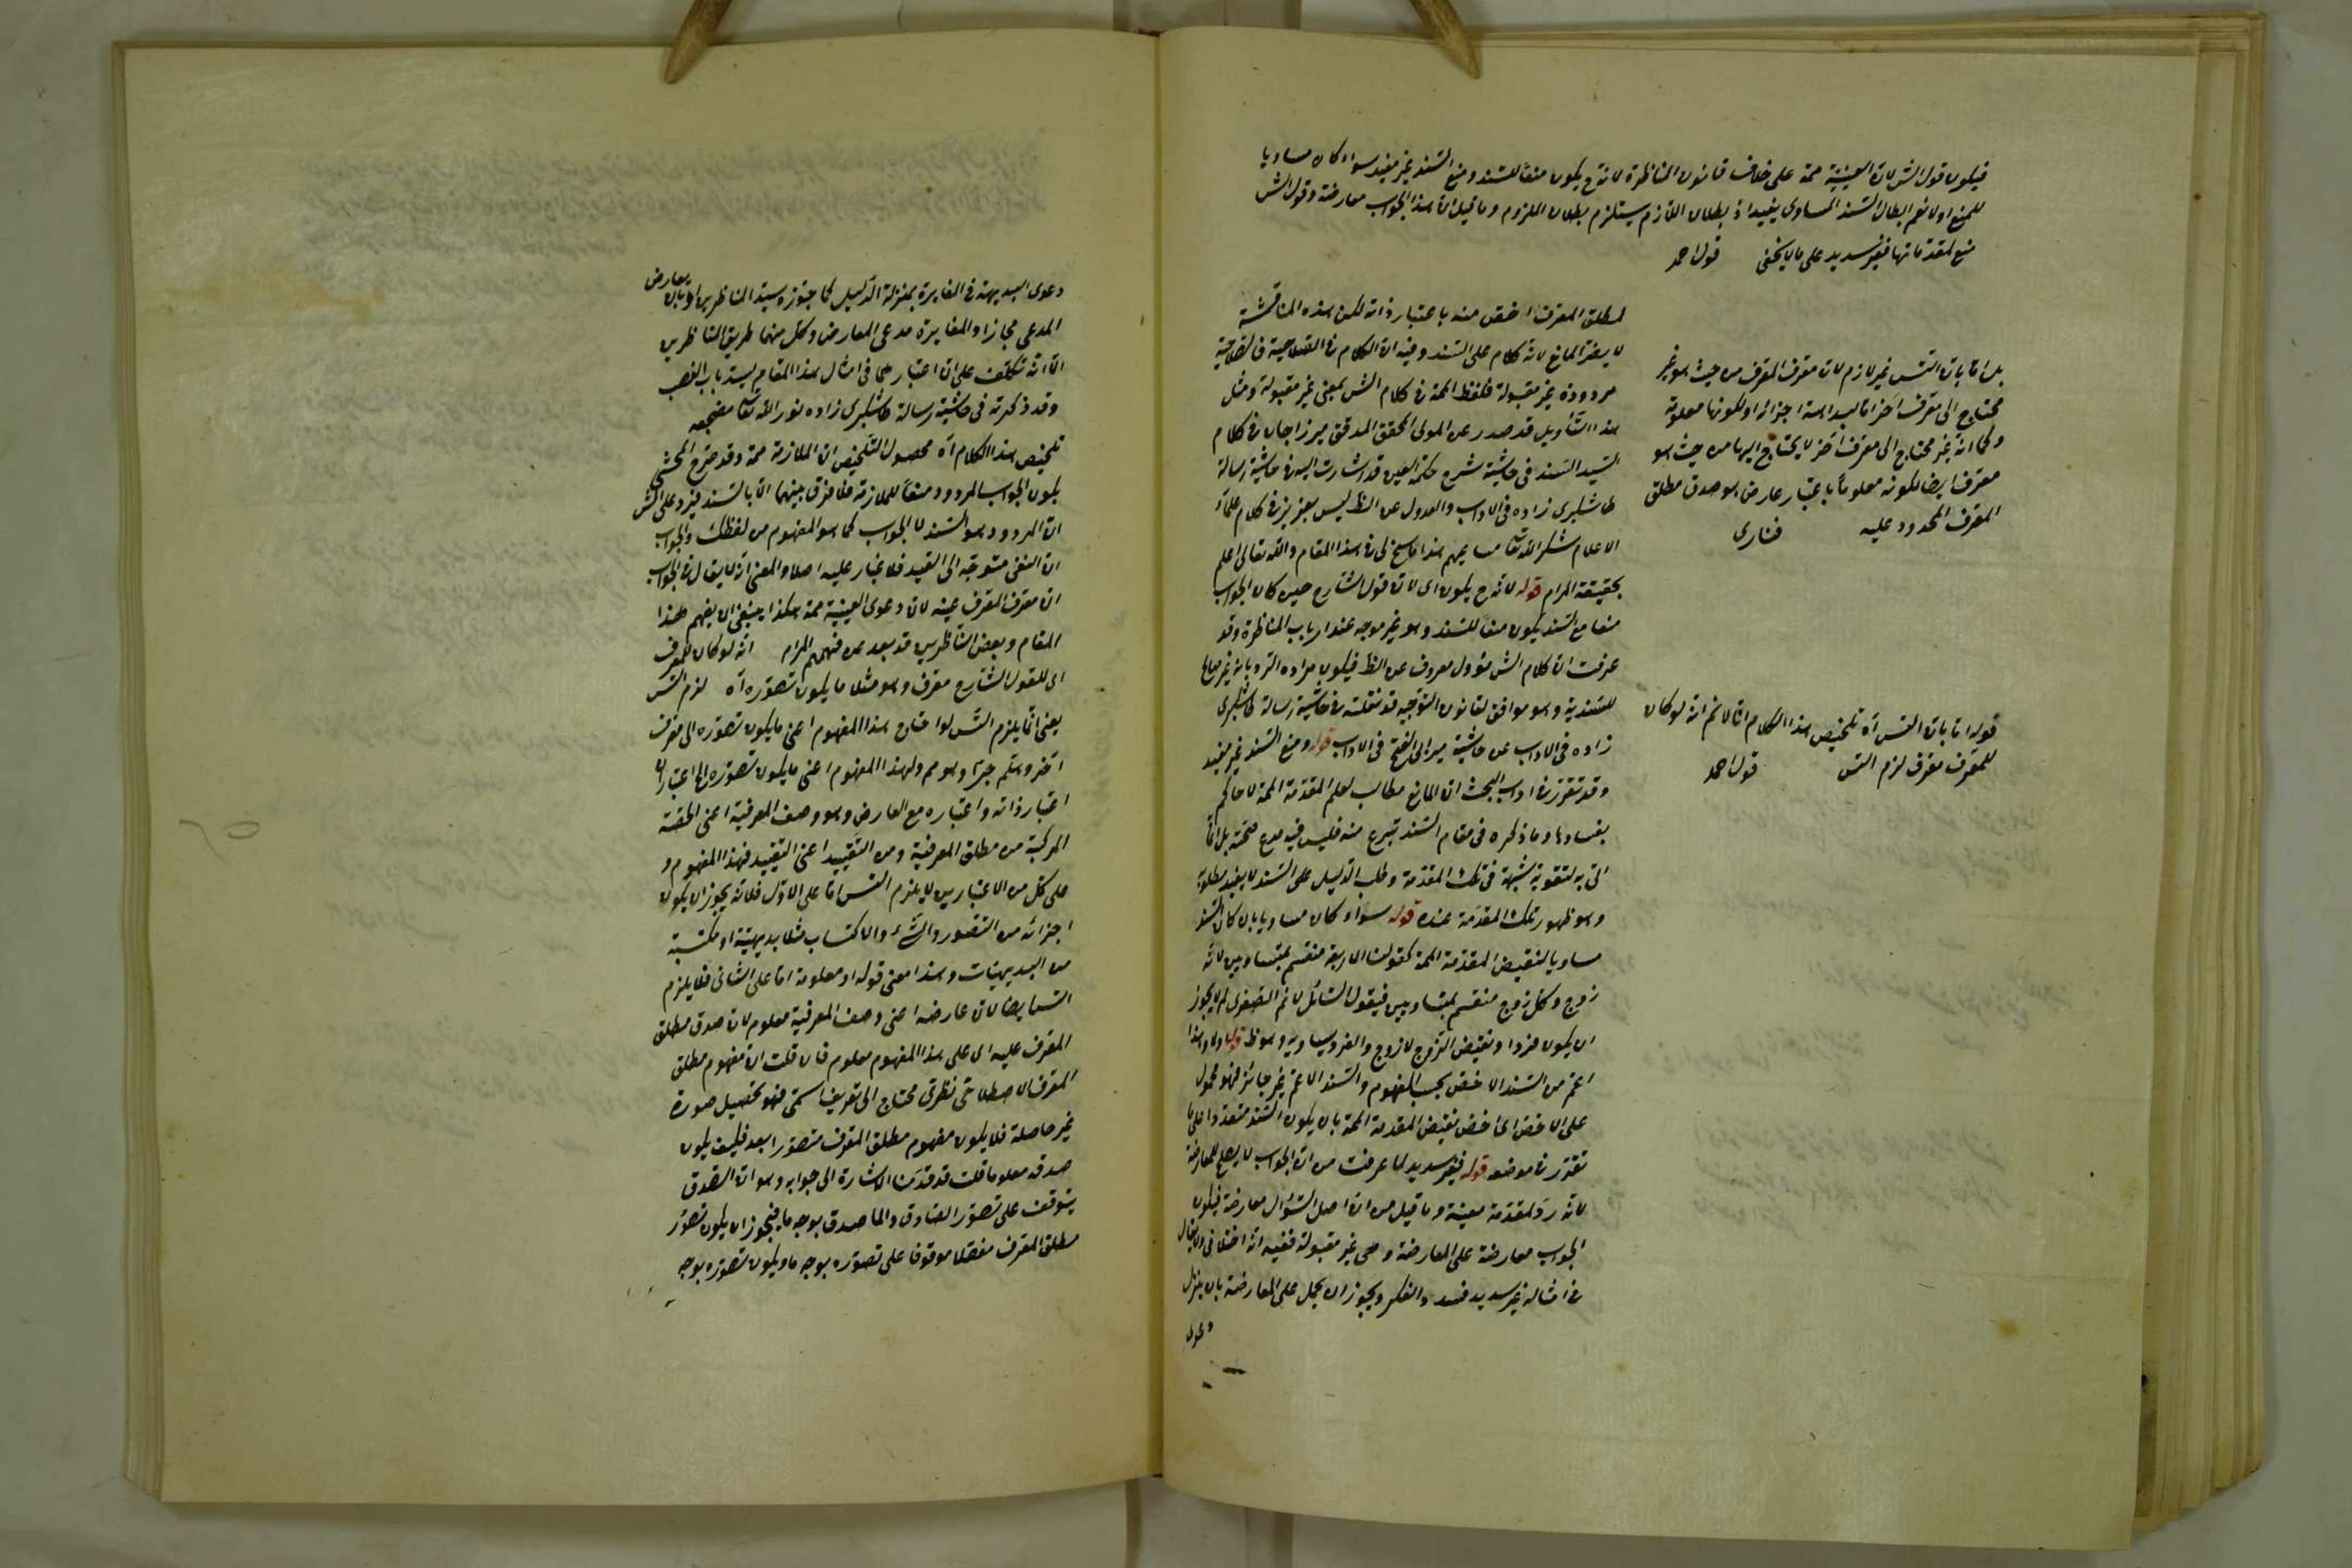 فيكون قول الش لان العينية ممة على خلاف قانون المناظرة لانه ح يكون منعا للسند ومنع السند غير مفيد سواء كان مساويا
للمنع اولا نعم ابطال السند المساوى يفيد اذ بطلان اللازم يستلزم بطلان الملزوم وما قيل ان هذا الجواب معارضة وقول الش
منع لمقدماتها فغير سديد على ما لا يخفى قول احمد
لمطلق المعرف اخص منه باعتبار ذاته لكن هذه المناقشة
لا يضر المانع لانه كلام على السند وفيه ان الكلام فى الصلاحية فالصلاحية
مردودة غير مقبولة فلفظ الممة فى كلام الش بمعنى غير مقبولة ومثل
هذا التأويل قد صدر عن المولى المحقق المدقق ميرزاجان فى كلام
السيد السند فى حاشية شرح حكمة العين قد اشارت اليه فى حاشية رسالة
طاشكبرى زاده فى الاداب والعدول عن الظ ليس بعزيز فى كلام علماء
الاعلام شكر الله تعا مساعيهم هذا ما سنح لى فى هذا المقام والله تعالى اعلم
بحقيقة المرام قوله لانه ح يكون اى لان قول الشارح حين كان الجواب
منعا مع السند يكون منعا للسند وهو غير موجه عند ارباب المناظرة وقد
عرفت ان كلام الش مؤول معروف عن الظ فيكون مراده الرد بانه غير صالح
للسندية وهو موافق لقانون التوجيه قد نقلته فى حاشية رسالة طاشكبرى
زاده فى الاداب عن حاشية مير ابى الفتح فى الاداب قوله ومنع السند غير مفيد
وقد تقرر فى اداب البحث ان المانع مطالب لعلم المقدمة الممة لا حاكم
بفسادها وما ذكره فى مقام السند تبرع منه فليس فيه مدع صحته بل انما
اتى به لتقوية شبهة فى تلك المقدمة وطلب الدليل على السند لا يفيد مطلوبه
وهو ظهور تلك المقدمة عنده قوله سواء كان مساويا بان كان السند
مساويا لنقيض المقدمة الممة كقولنا الاربعة منقسم بمتساويين لانه
زوج وكل زوج منقسم بمتساويين فيقول السائل لا نم الصغرى لم لا يجوز
ان يكون فردا ونقيض الزوج لا زوج والفرد يساويه وهو ظ قوله اولا وهذا
اعم من السند الاخص بحسب المفهوم والسند الاعم غير جائز فهو محمول
على الاخص اى اخص نقيض المقدمة الممة بان يكون السند متعددا على ما
تقرر فى موضعه قوله فغير سديد لما عرفت من ان الجواب لا يصلح للمعارضة
لانه رد لمقدمة معينة وما قيل من ان اصل السؤال معارضة فيكون
الجواب معارضة على المعارضة وهى غير مقبولة ففيه انه اختلافى ولا يقال
فى امثاله غير سديد فسدد الفكر ويجوز ان يحمل على المعارضة بان ينزل
دعوى
بل اما بان التس غير لازم لان معرف المعرف من حيث هو غير
محتاج الى معرف اخر اما لبداهة اجزائه او لكونها معلومة
وكما انه غير محتاج الى معرف اخر لا يحتاج ايها من حيث هو
معرف ايضا لكونه معلوما باعتبار عارض هو صدق مطلق
المعرف المحدود عليه فنارى
قوله اما بان التس آه تلخيص هذا الكلام انا لا نم انه لو كان
للمعرف معرف لزم التس قول احمد
دعوى البديهة فى المغايرة بمنزلة الدليل كما جوزه سيد المناظرين او بان يعارض
المدعى مجازا والمغايرة مدعى المعارض وكل منهما طريق المناظرين
الا انه تكلف على ان اعتبارهما فى امثال هذا المقام يسد باب الغصب
وقد ذكرته فى حاشية رسالة طاشكبرى زاده نور الله تعا مضجعه
تلخيص هذا الكلام آه محصول التلخيص ان الملازمة ممة وقد صرح المحشى
يكون الجواب المردود منعا للملازمة فلا فرق بينهما الا بالسند فيرد على الش
ان المردود هو السند لا الجواب كما هو المفهوم من لفظك والجواب
ان النفى متوجه الى القيد فلا غبار عليه اصلا والمعنى انه لا يقال فى الجواب
ان معرف المعرف عينه لان دعوى العينية ممة هكذا ينبغى ان يفهم هذا
المقام وبعض الناظرين قد بعد عن فهمهم المرام انه لو كان للمعرف
اى للقول الشارح معرف وهو مثلا ما يكون تصوره آه لزم التس
يعنى انما يلزم التس لو احتاج هذا المفهوم اعنى ما يكون تصوره الى معرف
آخر وهلم جرا وهو مم ولهذا المفهوم اعنى ما يكون تصوره اه اعتباران
اعتبار ذاته واعتباره مع العارض وهو وصف المعرفية اعنى الحصة
المركبة من مطلق المعرفية ومن التقييد اعنى التقييد فهذا المفهوم و
على كل من الاعتبارين لا يلزم التس اما على الاول فلانه يجوز ان يكون
اجزائه من التصور والشىء والاكتساب مثلا بديهية او مكتسبة
من البديهيات وهذا معنى قوله او معلومة اما على الثانى فلا يلزم
التس ايضا لان عارضه اعنى وصف المعرفية معلوم لان صدق مطلق
المعرف عليه اى على هذا المفهوم معلوم فان قلت ان مفهوم مطلق
المعرف الاصطلاحى نظرى محتاج الى تعريف اسمى فهو تحصيل صورة
غير حاصلة فلا يكون مفهوم مطلق المعرف متصورا بعد فكيف يكون
صدقه معلوما قلت قد قدمنا الاشارة الى جوابه وهو ان الصدق
يتوقف على تصور الصادق والما صدق بوجه ما فيجوز ان يكون تصور
مطلق المعرف مفصلا موقوفا على تصوره بوجه ما ويكون تصوره بوجه